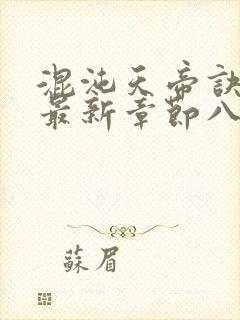 混沌天帝訣
最新章節八
蘇眉